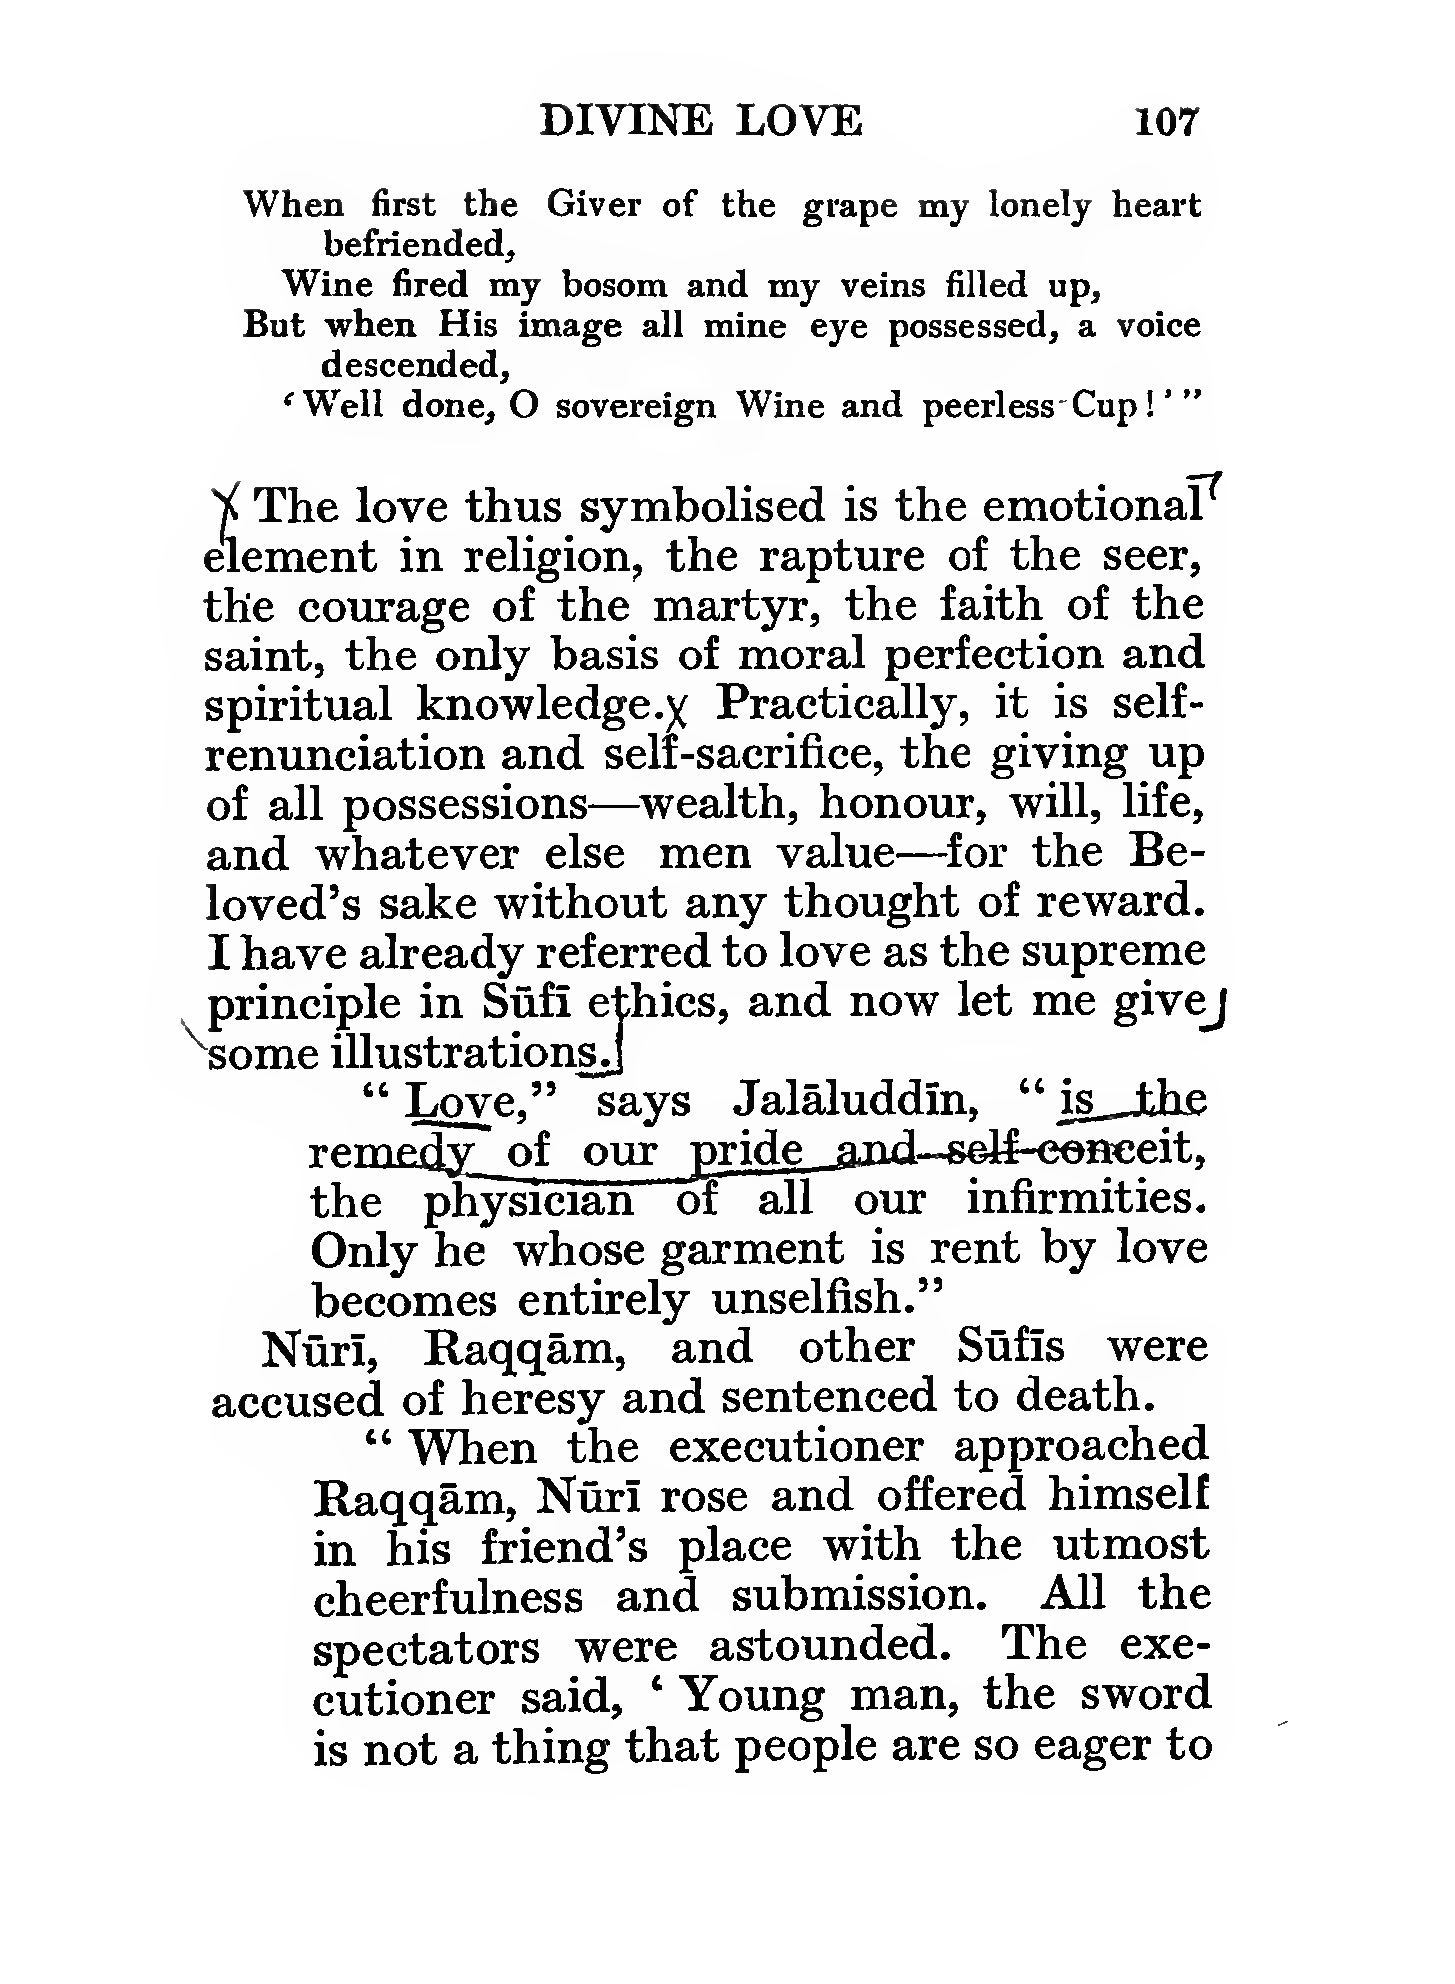 DIVINE LOVE 107
When first the Giver of the grape my lonely heart
befriended,
Wine fired my bosom and my veins filled up,
But when His image all mine eye possessed, a voice
descended,
‘Well done, O sovereign Wine and peerless Cup!’”
The love thus symbolised is the emotional
element in religion, the rapture of the seer,
the courage of the martyr, the faith of the
saint, the only basis of moral perfection and
spiritual knowledge. Practically, it is self-
renunciation and self-sacrifice, the giving up
of all possessions—wealth, honour, will, life,
and whatever else men value—for the Be-
loved’s sake without any thought of reward.
I have already referred to love as the supreme
principle in Sūfī ethics, and now let me give
some illustrations.
“Love,” says Jalāluddīn, “is the
remedy of our pride and self-conceit,
the physician of all our infirmities.
Only he whose garment is rent by love
becomes entirely unselfish.”
Nūrī, Raqqām, and other Sūfīs were
accused of heresy and sentenced to death.
“When the executioner approached
Raqqām, Nūrī rose and offered himself
in his friend’s place with the utmost
cheerfulness and submission. All the
spectators were astounded. The exe-
cutioner said, ‘Young man, the sword
is not a thing that people are so eager to